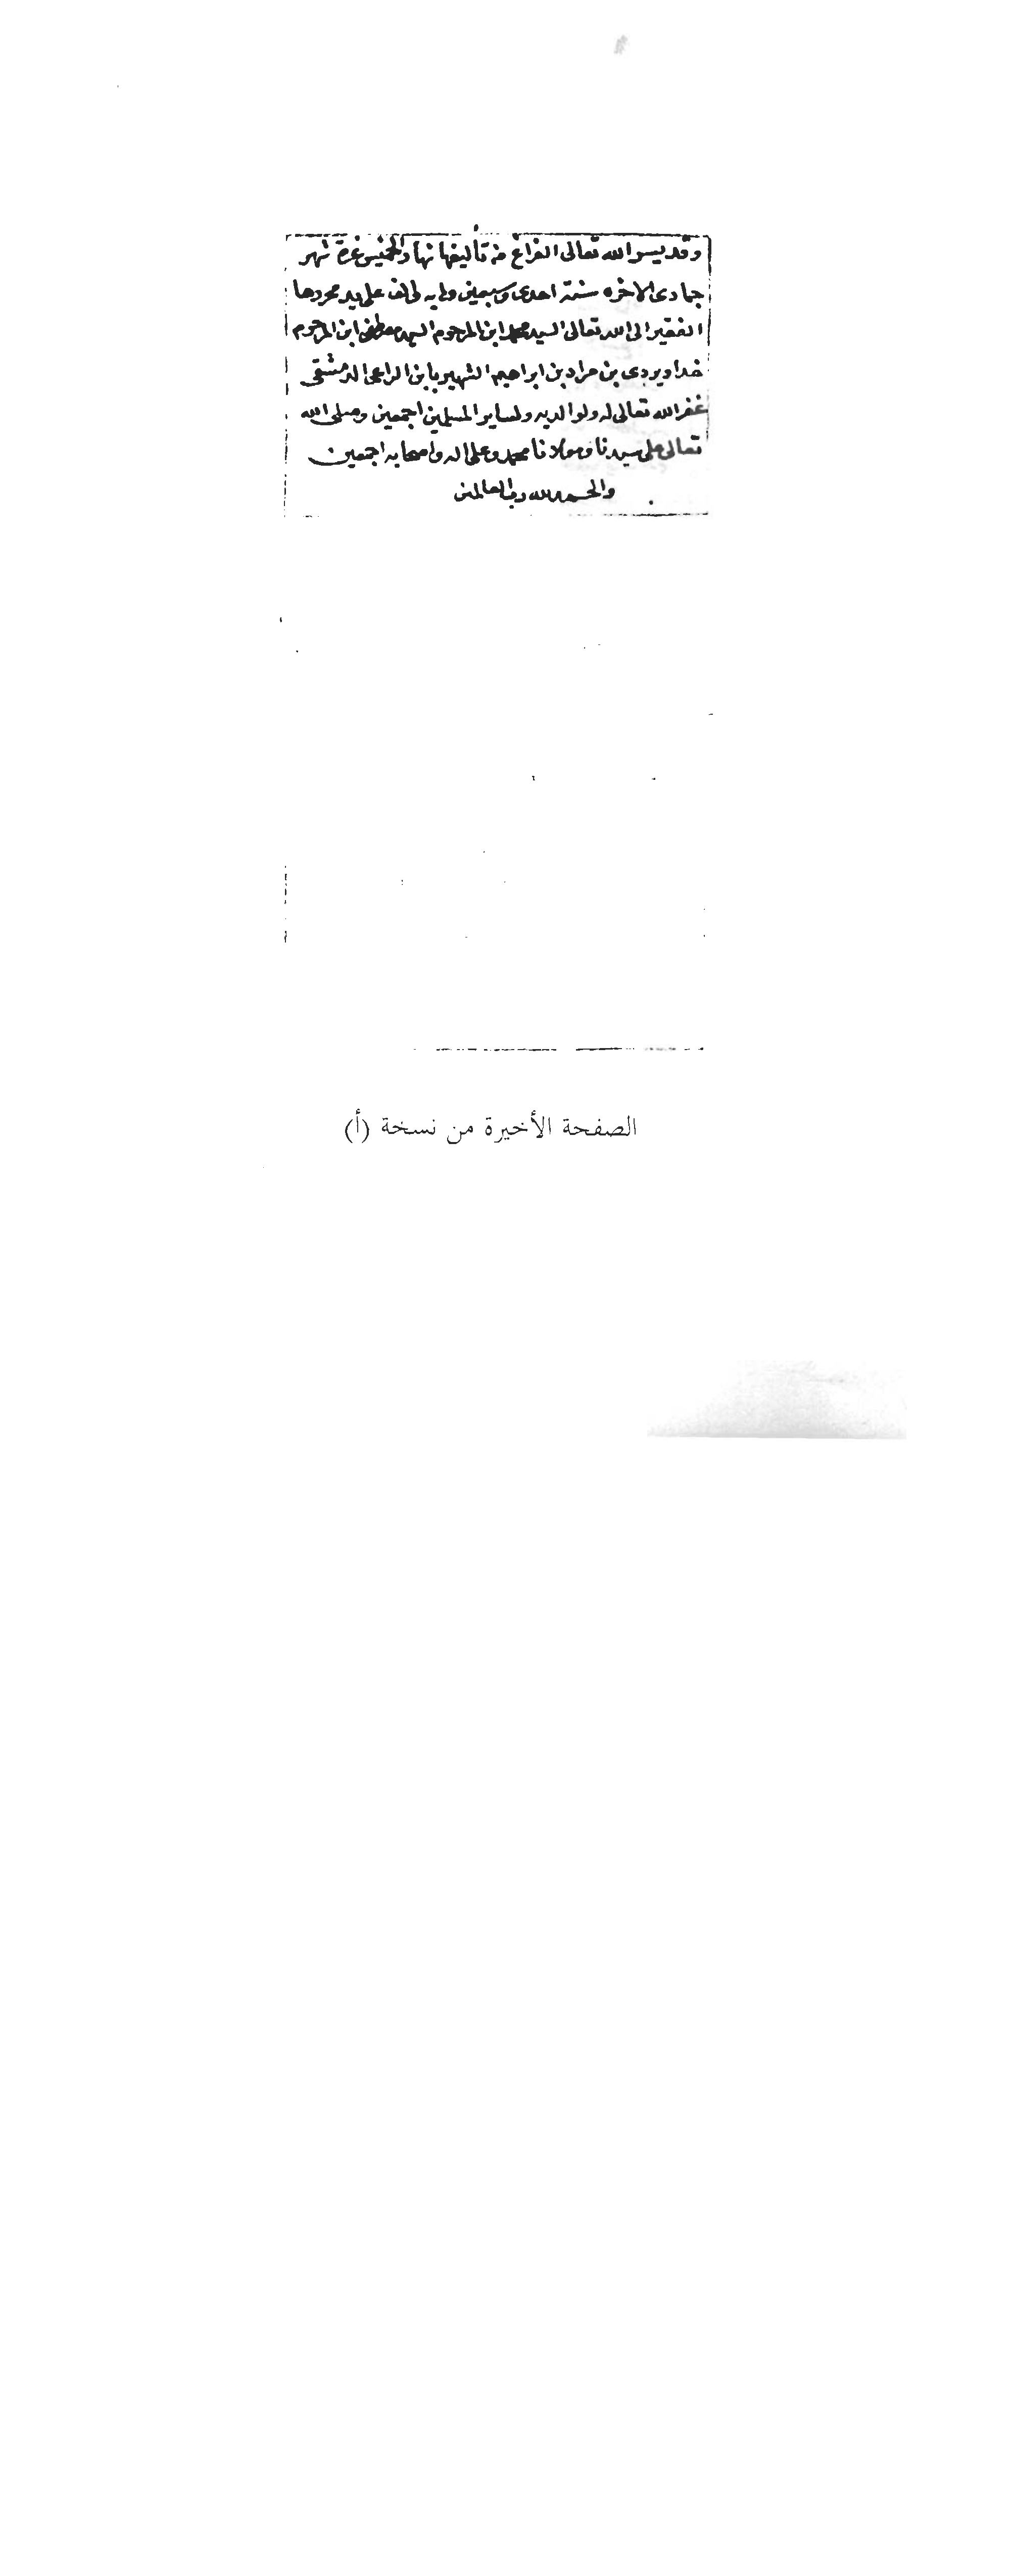 وقد يسر الله تعالى الفراغ من تأليفها نهار الخميس غرة شهر
جمادى الاخره سنة احدى وسبعين ومايه والف على يد محررها
الفقير الى الله تعالى السيد محمد ابن المرحوم السيد مصطفى ابن المرحوم
خداويردى بن مراد بن ابراهيم الشهير بابن الراعى الدمشقى
غفر الله تعالى له ولوالديه ولساير المسلمين اجمعين وصلى الله
تعالى على سيدنا ومولانا محمد وعلى اله واصحابه اجمعين
والحمد لله رب العالمين
الصفحة الأخيرة من نسخة (أ)